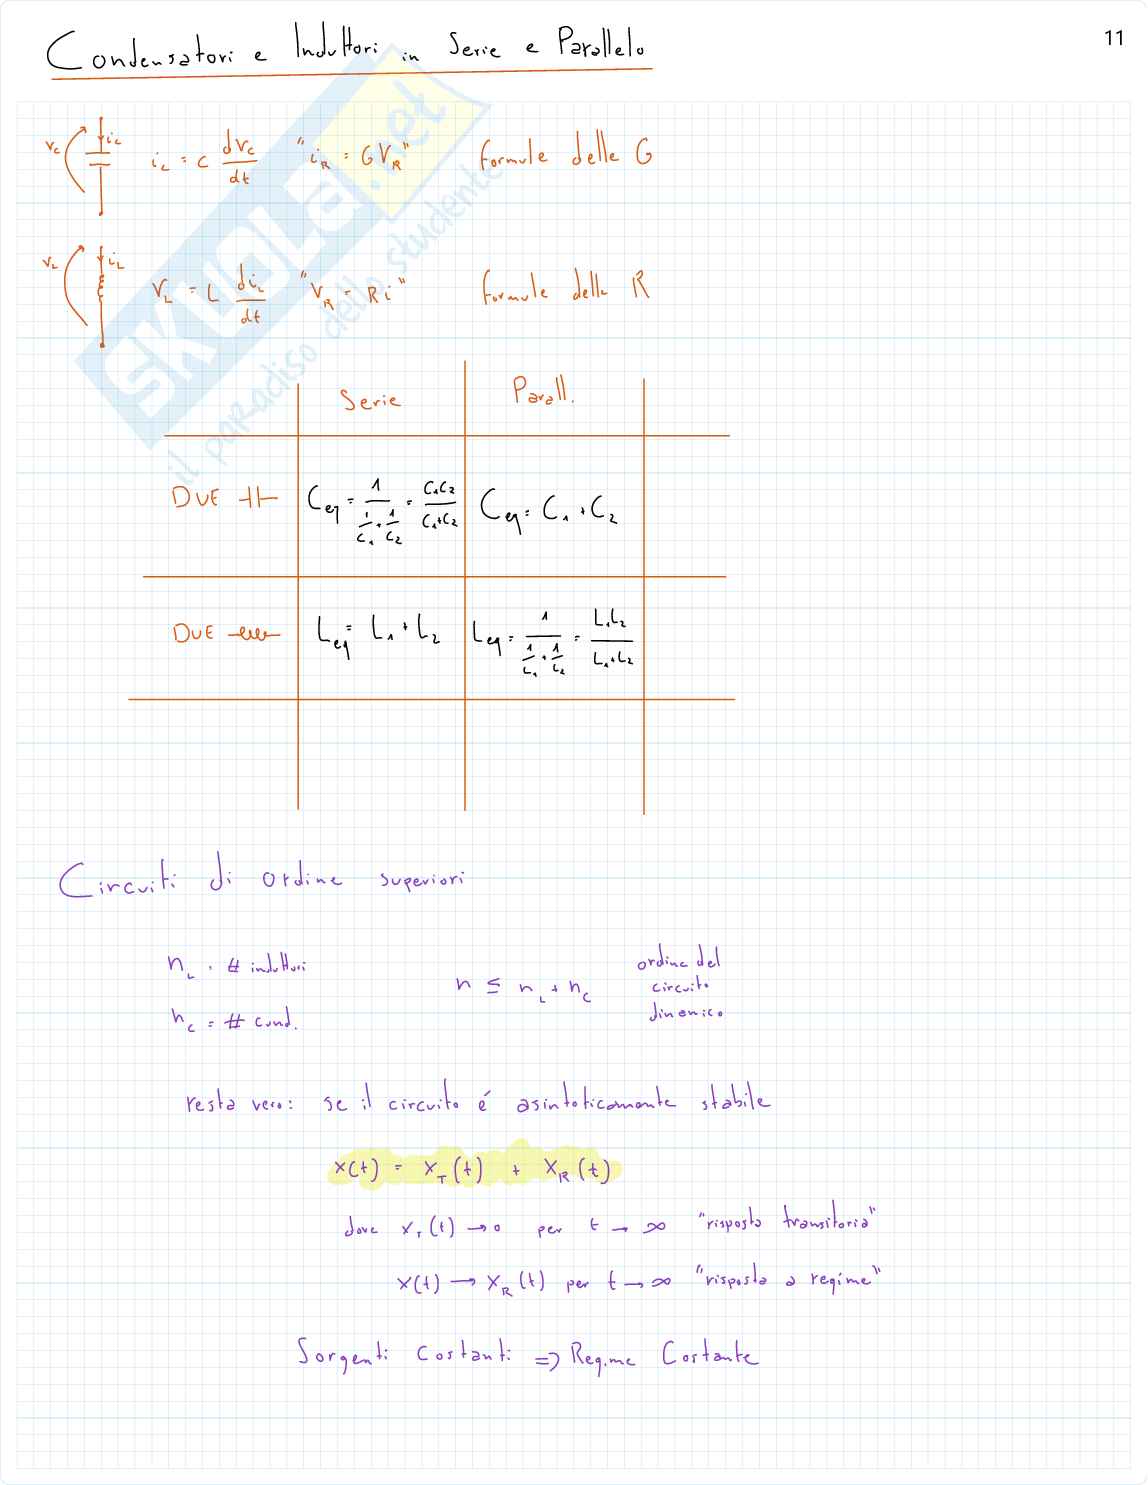 Condensatori e Induttori in Serie e Parallelo
11
v_C i_C i_C = C dv_C/dt "i_R = G V_R" formule delle G
v_L i_L V_L = L di_L/dt "V_R = R i" formule delle R
SKUOLA.net
il paradiso dello studente
Serie Parall.
DUE ⊣⊢ C_eq = 1/(1/C_1 + 1/C_2) = C_1C_2/(C_1+C_2) C_eq = C_1 + C_2
DUE L_eq = L_1 + L_2 L_eq = 1/(1/L_1 + 1/L_2) = L_1L_2/(L_1+L_2)
Circuiti di ordine superiori
n_L = # induttori
n_C = # cond.
n ≤ n_L + n_C
ordine del
circuito
dinamico
resta vero: se il circuito é asintoticamente stabile
x(t) = x_T(t) + x_R(t)
dove x_T(t) → 0 per t → ∞ "risposta transitoria"
x(t) → x_R(t) per t → ∞ "risposta a regime"
Sorgenti Costanti => Regime Costante